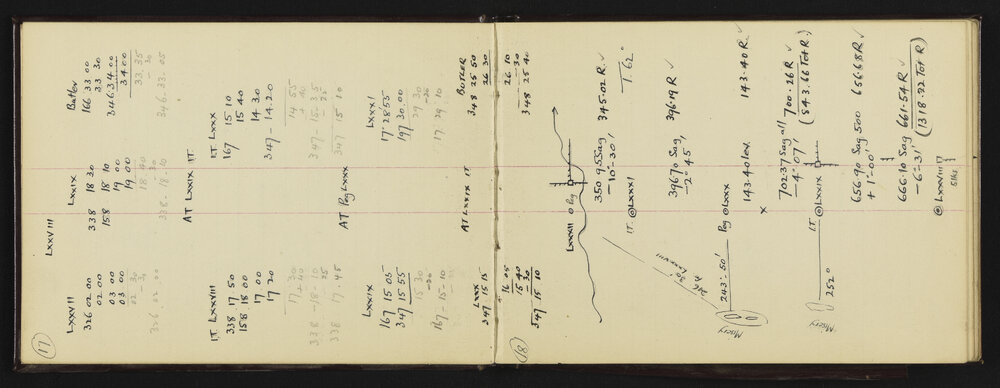 17
LXXVIII
LXXVII
326 02 00
02 00
03 00
03 00
02 - 30
326 02 00
LXXIX
338 18 30
158 18 10
19 00
19 00
18 40
338 - 18 - 10
Butler
166 33 00
33 30
346 34 00
34 00
33. 35
- 30
346. 33. 05
AT LXXIX I.T.
I.T. LXXVIII
338 17 50
158 18 00
17 00
17 20
17 - 30
+ 40
338 - 18 - 10
- 25
338 17. 45
I.T. LXXX
167 15 10
15 40
14 30
347 - 14. 20
14 55
+ 40
347 - 15 - 35
- 25
347 15 10
AT Peg LXXX
LXXIX
167 15 05
347 15 55
15 30
- 20
167 - 15 - 10
LXXXI
17. 28 55
197 30. 00
29 30
- 20
17 29 10
AT LXXIX I.T.
LXXX
347 15 15
BUTLER
348 25 50
26 30
18
16. 05
15 40
- 30
347 15 10
26 10
- 30
348 25 40
LXXXII ⊙ Peg
350 95 Sag 345.02 R. ✓
- 10° - 30'
T. 62°
I.T. @ LXXXI
396 70 Sag 396.19 R ✓
- 2° 45'
LXXXVIII
243° . 50' Peg @ LXXX
143.40 lev. 143.40 R. ✓
x
Misery
702.37 Sag all 700.26 R ✓
- 4° . 07' (843.66 Tot R.)
I.T. @ LXXIX
252°
Misery
656.90 Sag 500 656.68 R ✓
+ 1° - 00'
666.10 Sag 661.54 R ✓
- 6° - 31' (1318.22 Tot R)
@ LXXVIII